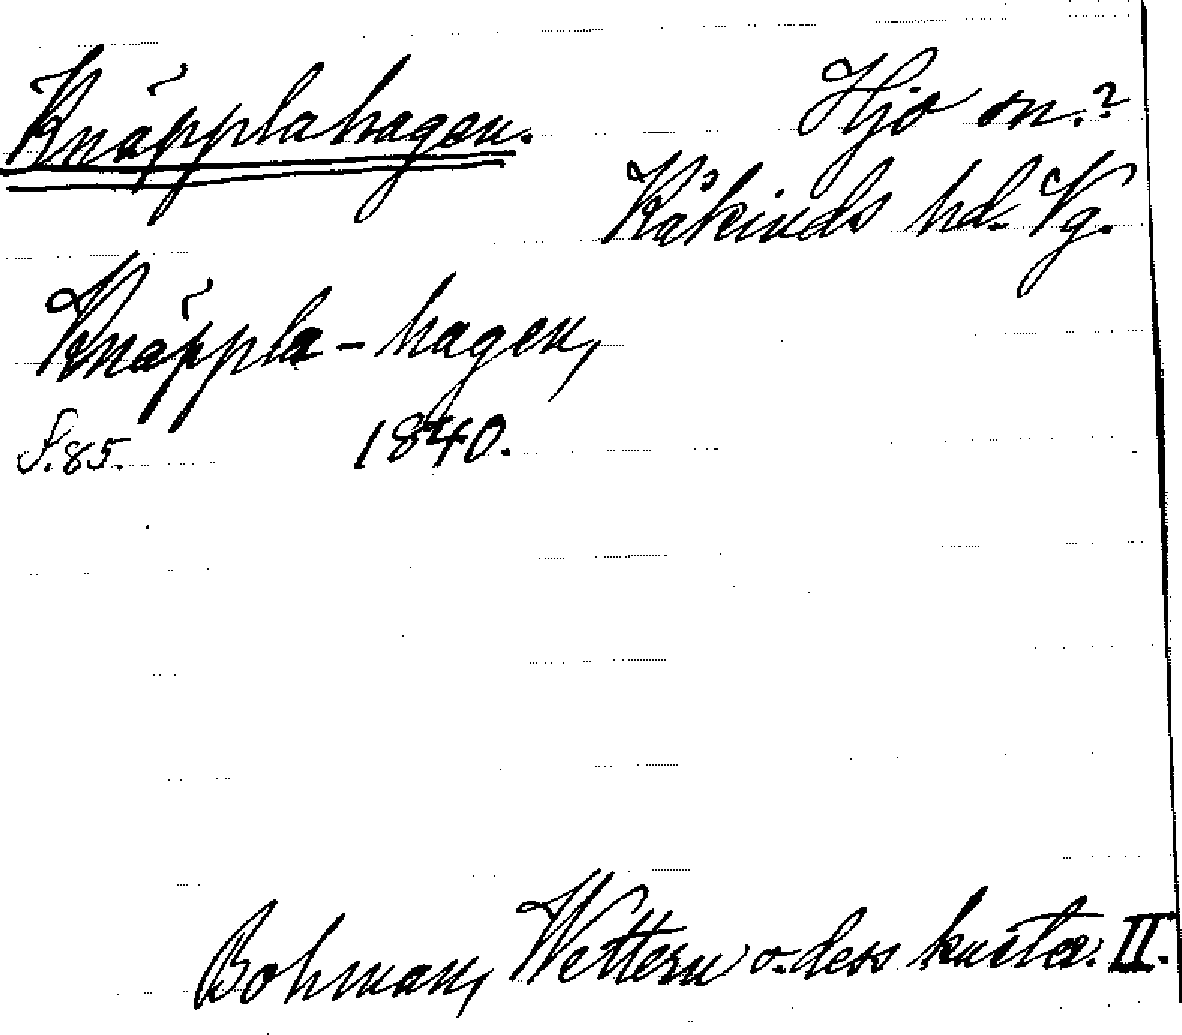 Knäpplahagen. Hjo sn.?
Kåkinds hd. Vg.
Knäppla-hagen,
S. 85. 1840.
Bohman, Wettern o. dess kuster. II.